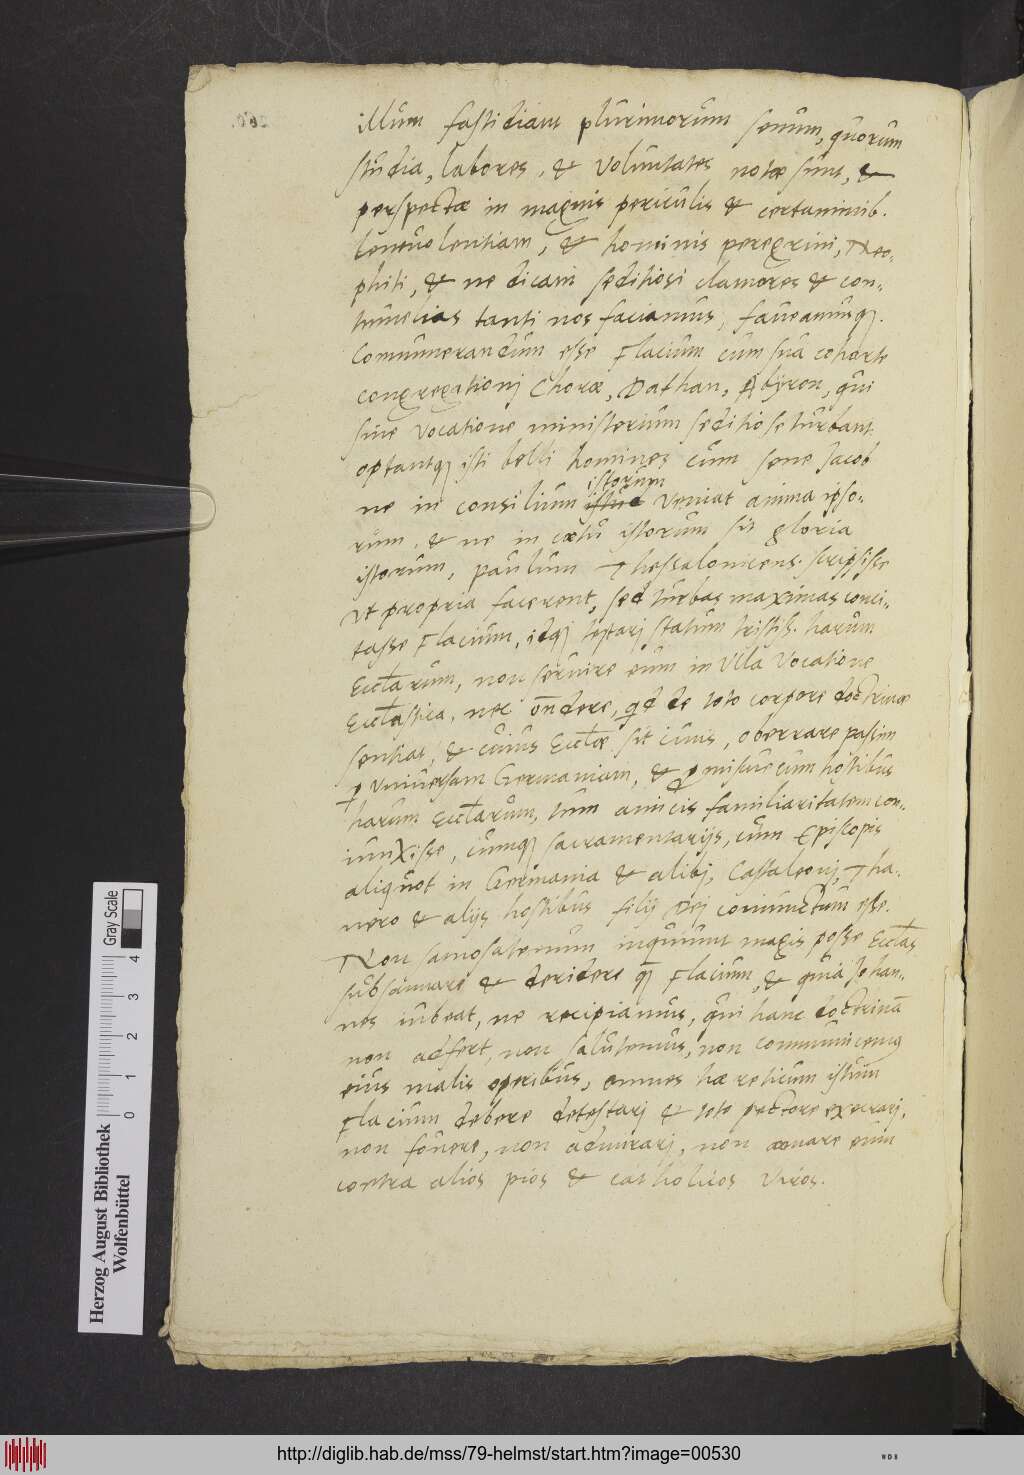 illum fastidiam plurimorum senum, quorum
studia, labores, & voluntates notæ sunt, &
perspectæ in magnis periculis & certaminib.
beneuolentiam, & hominis peregrini, Neo-
phiti, & ne dicam seditiosi clamores & con-
tumecias tanti nos faciamus, faueamusq.
Commumerandum esse Flacium cum sua cohorte
congregationj Choræ, Dathan, Abyron, qui
sine vocatione ministerium seditiose turbant.
optantq isti belli homines cum sene Jacob
istorum
ne in consilium istuc veniat anima ipso-
rum, & ne in cœtu istorum sit gloria
istorum, Paulum Thessalonicens. scripsisse
ut propria facerent, sed turbas maximas conci-
tasse Flacium, idq testari statum tristiss. harum
Eccłarum, non seruire eum in vlla vocatione
Eccłastica, nec on̄dere, qd de toto corpore doctrinæ
sentiat, & cuius Eccłæ sit ciuis, oberrare passim
p vniuersam Germaniam, & p misure cum hostibus
harum Eccłarum, tum amicis familiaritatem con-
iunxisse, cumq sacramentarijs, cum Episcopis
aliquot in Germania & alibj, Castaleonj, Tha-
nero & alijs hostibus filij Dej coniunctum esse.
Non samosatenum inquiunt magis posse Eccłas
subsannare & deridere q̄ Flacium, & quia Johan-
nes iubeat, ne recipiamus, qui hanc doctrinā
non adfert, non salutemus, non communicemus
eius malis operibus, omnes hæreticum istum
Flacium debere detestarj & toto pectore execrarj,
non fouere, non admirarj, non amare eum
contra alios pios & catholicos viros.
Herzog August Bibliothek
Wolfenbüttel
0 1 2 3 4
Gray Scale
http://diglib.hab.de/mss/79-helmst/start.htm?image=00530
WDB